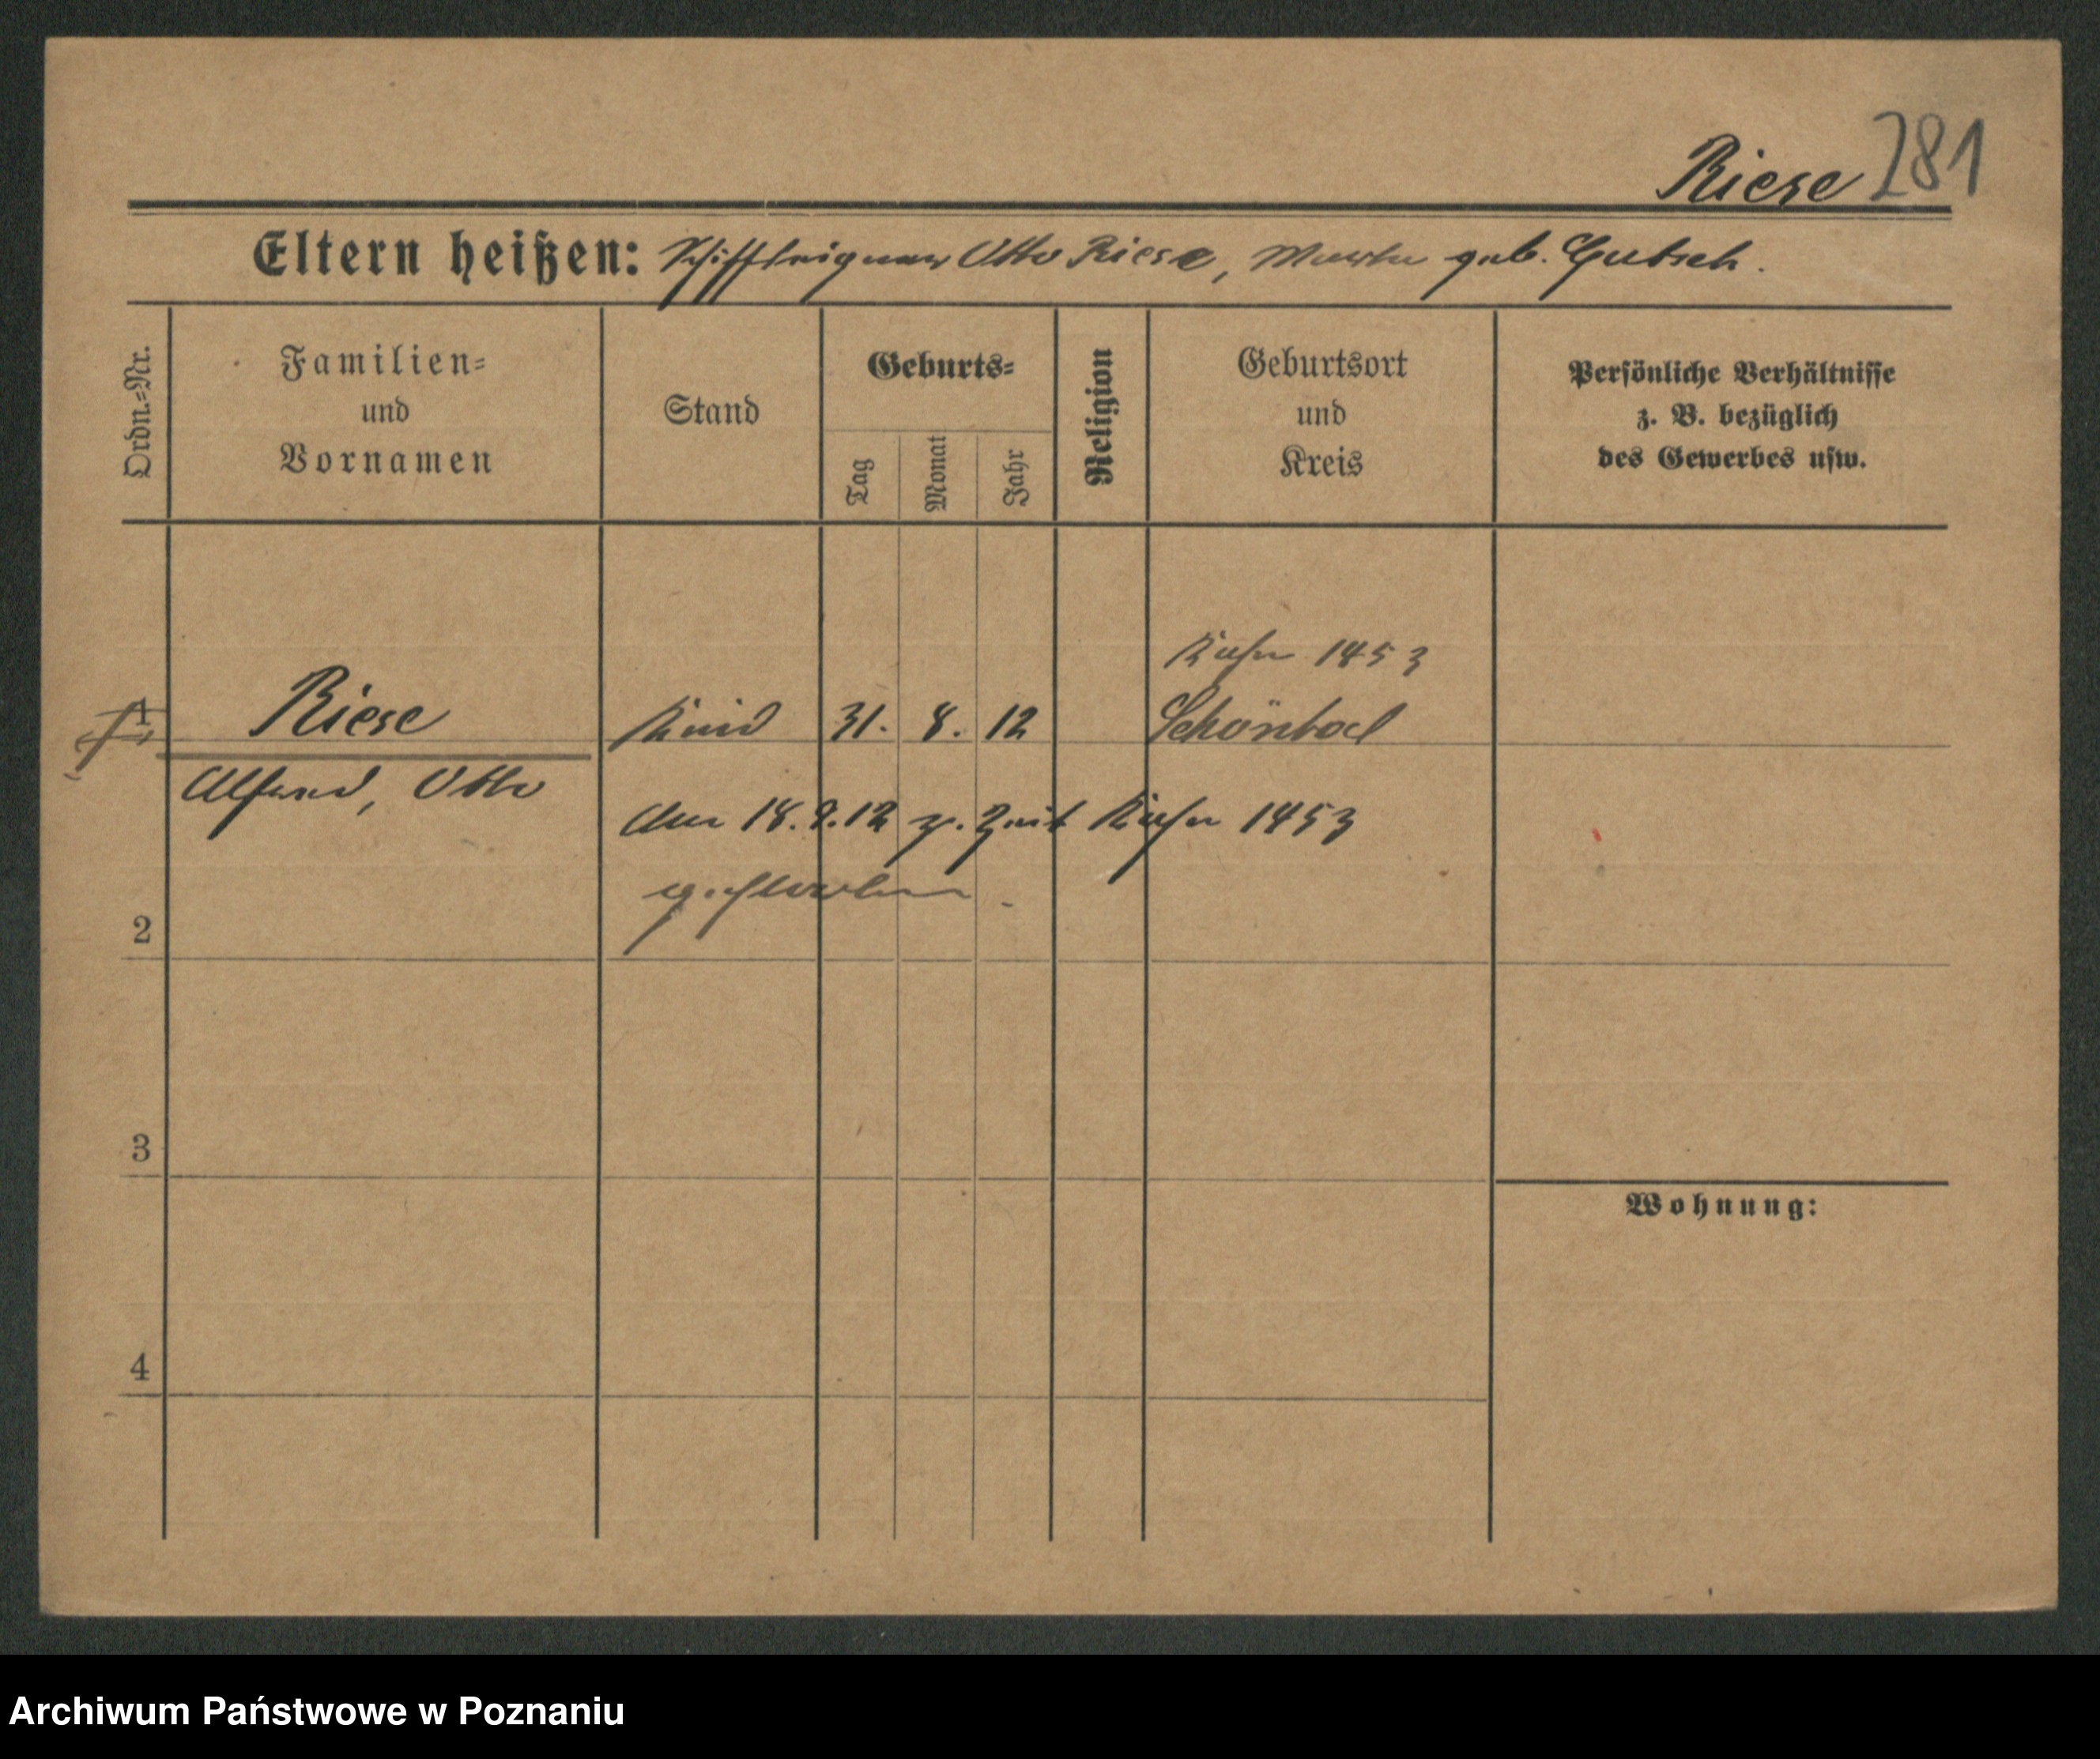 Riese 281
Eltern heißen: Schiffseigner Otto Riese, Martha geb. Gutsch.
Ordn.=Nr.
Familien=
und
Vornamen
Stand
Geburts=
Tag
Monat
Jahr
Religion
Geburtsort
und
Kreis
Persönliche Verhältnisse
z. B. bezüglich
des Gewerbes usw.
Kahn 1453
1 Riese Kind 31. 8. 12
Alfred, Otto
Am 18.9.12 z. Zeit Kahn 1453
gestorben.
2
3
Wohnung:
4
Archiwum Państwowe w Poznaniu